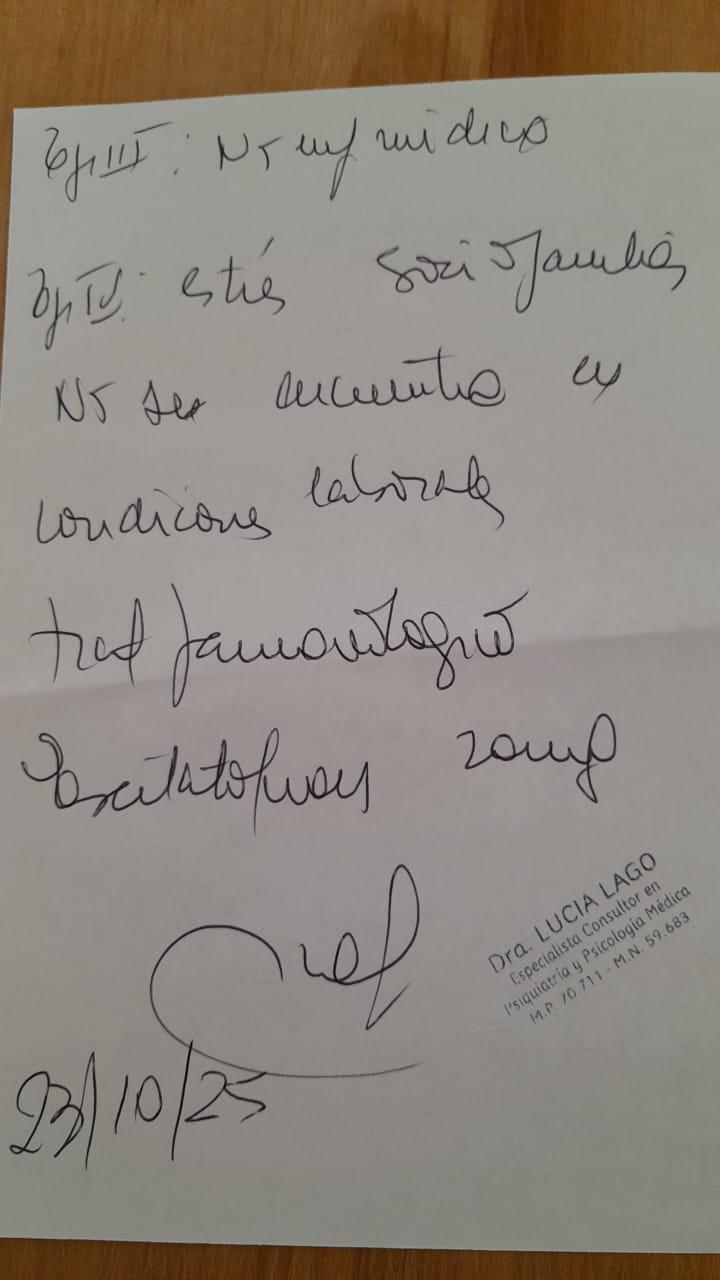 Eje III: No enf médica
Eje IV: estrés sociofamiliar
No se encuentra en
condiciones laborales
trat farmacológico
Escitalopram 20mg
Dra. LUCIA LAGO
Especialista Consultor en
Psiquiatría y Psicología Médica
M.P. 70.711 - M.N. 59.683
23/10/25